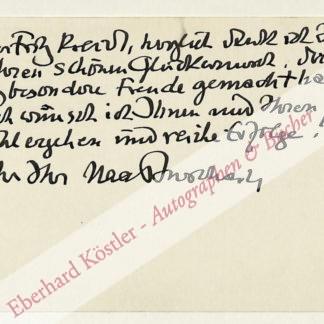 Fritz, herzlich dank ich
Ihren schönen Glückwunsch, der
besondere Freude gemacht ha
ich wünsch ich Ihnen und Ihren
ohlergehen und reiche Erfolge!
Ihr
Eberhard Köstler - Autographen & Bücher